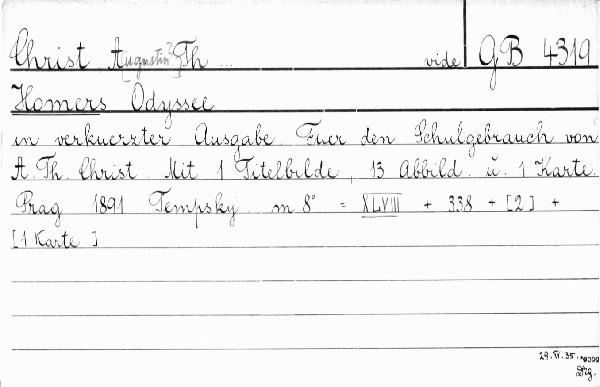 Christ, A[ugustin?] Th ... vide GB 4319
Homers Odyssee
in verkuerzter Ausgabe. Fuer den Schulgebrauch von
A. Th. Christ. Mit 1 Titelbilde, 13 Abbild. u. 1 Karte.
Prag 1891 Tempsky. m 8° = XLVIII + 338 + [2] +
[1 Karte]
29.VI.35.